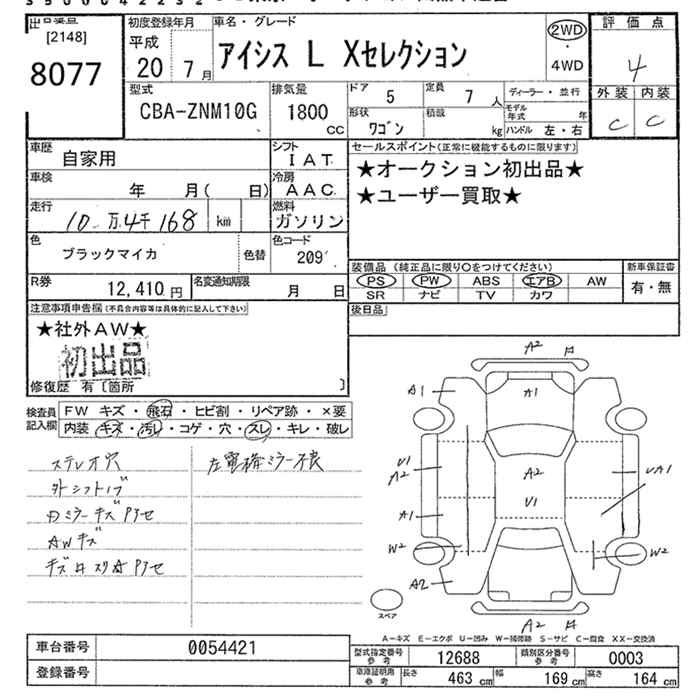 [2148]
8077
初度登録年月
平成
20 7月
車名・グレード
アイシス L Xセレクション
2WD
・
4WD
評価点
4
外装 内装
C C
型式
CBA-ZNM10G
排気量
1800
CC
ドア 5
定員 7 人
形状 ワゴン
積載 kg
ディーラー・並行
モデル年式 年
ハンドル 左・右
車歴 自家用
シフト IAT
セールスポイント(正常に機能するものに限ります)
★オークション初出品★
★ユーザー買取★
車検 年 月( 日)
冷房 AAC
走行 10万4千168 km
燃料 ガソリン
色 ブラックマイカ 色替
色コード 209
装備品(純正品に限り○をつけてください)
新車保証書
PS PW ABS エアB AW
SR ナビ TV カワ
有・無
R券 12,410円
名変通知期限 月 日
後日品
注意事項申告欄(不具合内容等は具体的に記入して下さい)
★社外AW★
初出品
修復歴 有〔箇所 〕
検査員記入欄
FW キズ・飛石・ヒビ割・リペア跡・×要
内装 キズ・汚レ・コゲ・穴・スレ・キレ・破レ
ステレオ穴
外シフトノブ
AWキズ
A2
A1 A1
U1 A2
A2
UA1
U1
A1
W2 W2
A2
A2
スペア
A-キズ E-エクボ U-凹み W-補修跡 S-サビ C-腐食 XX-交換済
車台番号 0054421
登録番号
型式指定番号参考 12688
類別区分番号参考 0003
車庫証明用参考 長さ 463cm 幅 169cm 高さ 164cm